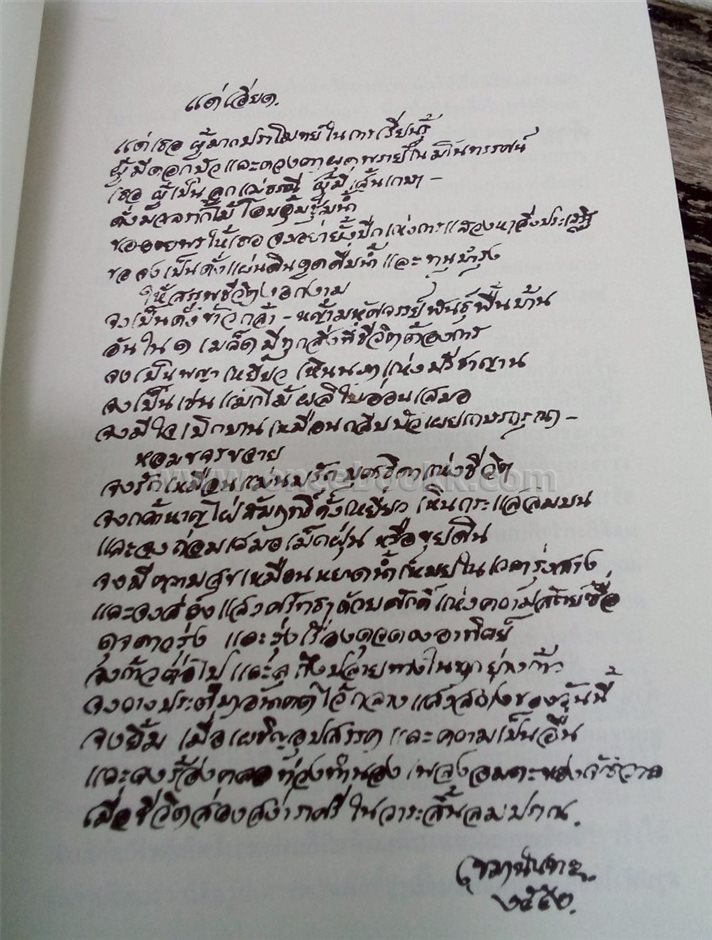 แด่เธอ ผู้มากปราโมทย์ในการเรียนรู้
ผู้มีดอกบัวและดวงตาผุดพรายใน
เธอ ผู้เป็นลูกแม่ธรณี ผู้มี
ดั่งมวลกิ่งไม้โอบอุ้มชุ่มน้ำ
ขออวยพรให้เธอ จงอย่ายั้งปีกแห่งการแสวงหาสิ่งประเสริฐ
ขอจงเป็นดั่งแผ่นดินดูดดื่มน้ำและทุนบำรุง
ให้สรรพชีวิตงอกงาม
จงเป็นดั่งข้าวกล้า - หญ้ามหัศจรรย์พันธุ์พื้นบ้าน
อันใน ๑ เมล็ดมีทุกสิ่งที่ชีวิตต้องการ
จงเป็นพญาเหยี่ยว เหินแห่งปรีชาญาณ
จงเป็นเช่นแมกไม้ผลิใบอ่อนเสมอ
จงมีใจเบิกบานเหมือนกลีบบัวเผยเกษรกรุณา -
หอมขจรขจาย
จงรักเหมือนแม่นมรักบุตรธิดาแห่งชีวิต
จงกล้าหาญใฝ่สัมฤทธิ์ดั่งเหยี่ยว เหินกระแสลมบน
และจงถ่อมเสมอเม็ดฝุ่น หรือขุยดิน
จงมีความสุขเหมือนหยาดน้ำเหมยในเวลารุ่งสาง
และจงส่องแสงศรัทธาด้วยศักดิ์แห่งความสัตย์ซื่อ
ดุจดาวรุ่ง และรุ่งเรืองดุจดวงอาทิตย์
จงก้าวต่อไป และลุถึงปลายทางในทุกย่างก้าว
จงวางประตีปอนาคตไว้กลางแสงสว่างของวันนี้
จงยิ้ม เมื่อเผชิญอุปสรรค และความเป็นอื่น
และจงร้องคลอท่วงทำนอง เพลงอมตะของจักรวาล
เมื่อชีวิตส่องสง่าราศรี ในวาระสิ้นลมปราณ.
เขมานันทะ.